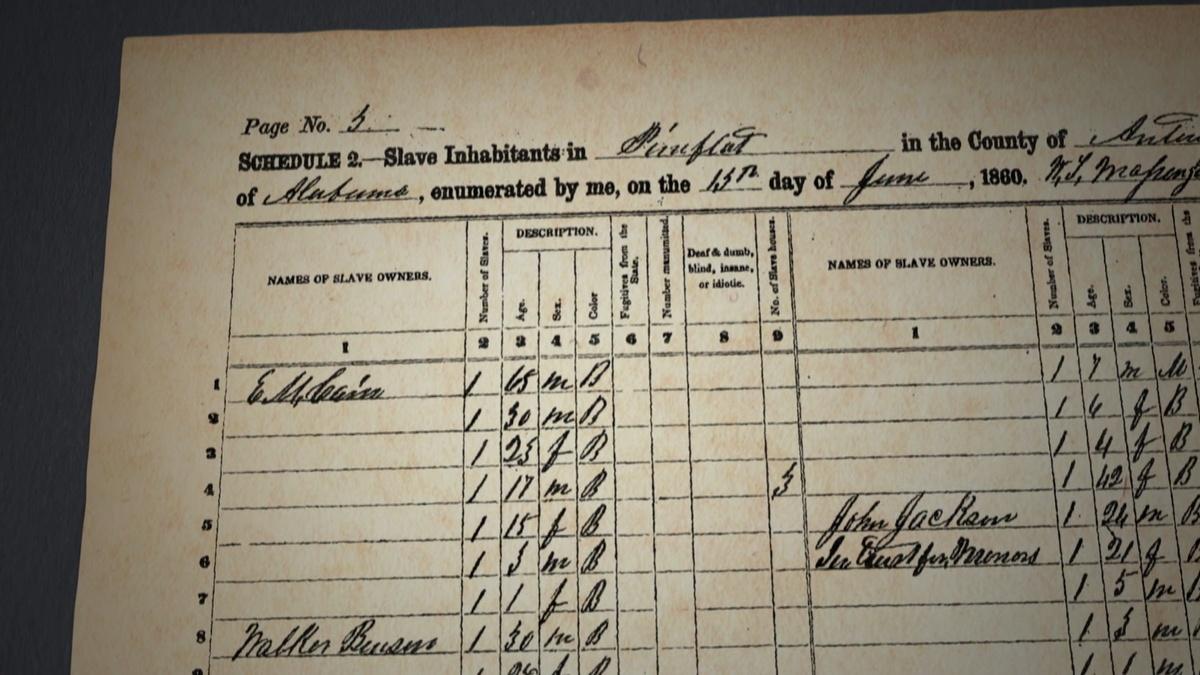 Page No. 3
SCHEDULE 2.—Slave Inhabitants in Pineflat in the County of
of Alabama, enumerated by me, on the 13th day of June, 1860.
NAMES OF SLAVE OWNERS. Number of Slaves. DESCRIPTION. Age. Sex. Color Fugitives from the State. Number manumitted. Deaf & dumb, blind, insane, or idiotic. No. of Slave houses. NAMES OF SLAVE OWNERS. Number of Slaves. DESCRIPTION. Age. Sex. Color. Fugitives from the
1 2 3 4 5 6 7 8 9 1 2 3 4 5
1 E. McCain 1 65 m B 1 7 m M
2 1 30 m B 1 6 f B
3 1 25 f B 1 4 f B
4 1 17 m B 3 1 42 f B
5 1 15 f B John Jackson 1 24 m B
6 1 3 m B In Trust for Minors 1 21 f
7 1 1 f B 1 5 m
8 Walker 1 30 m B 1 3 m
f B 1 1 m